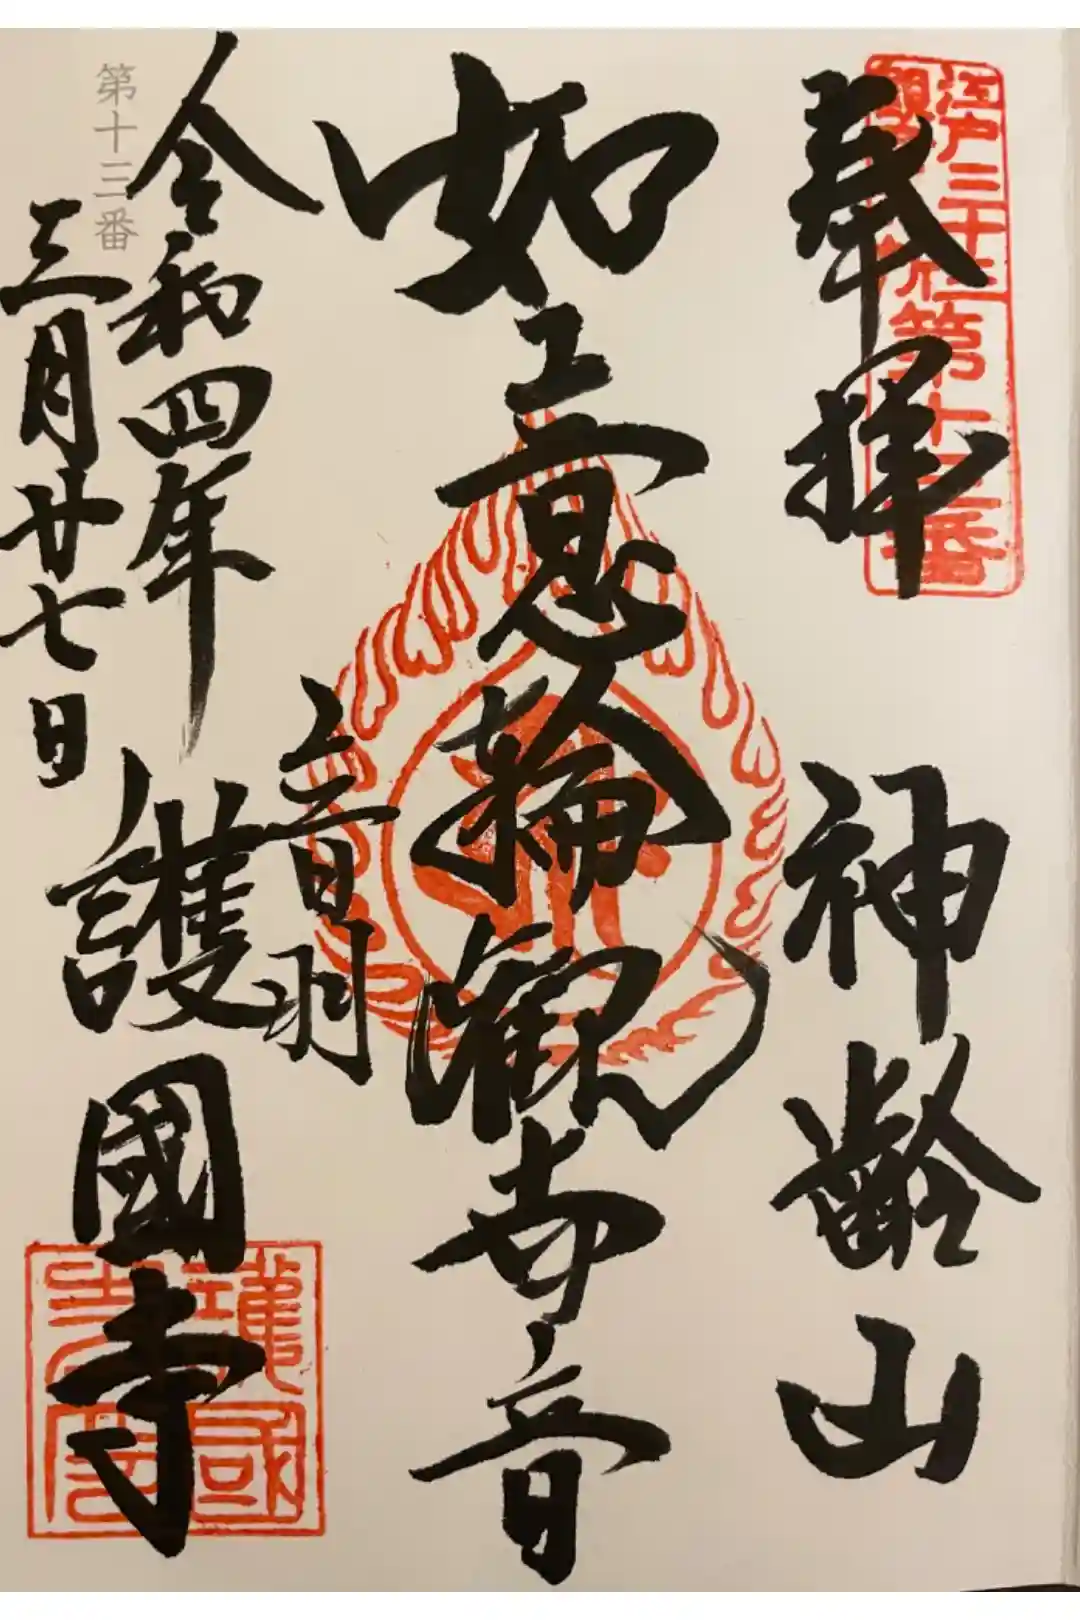 奉拝
神齢山
江戸三十三
札所第十三番
如意輪観世音
音羽
令和四年
三月廿七日
護國寺
第十三番